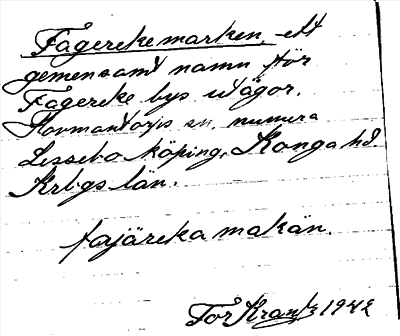 Fagerekemarken, ett
gemensamt namn för
Fagereke bys utägor.
Hovmantorps sn. numera
Lessebo köping, Konga hd
Krbgs län.
fajäreka makän.
Tor Krantz 1942